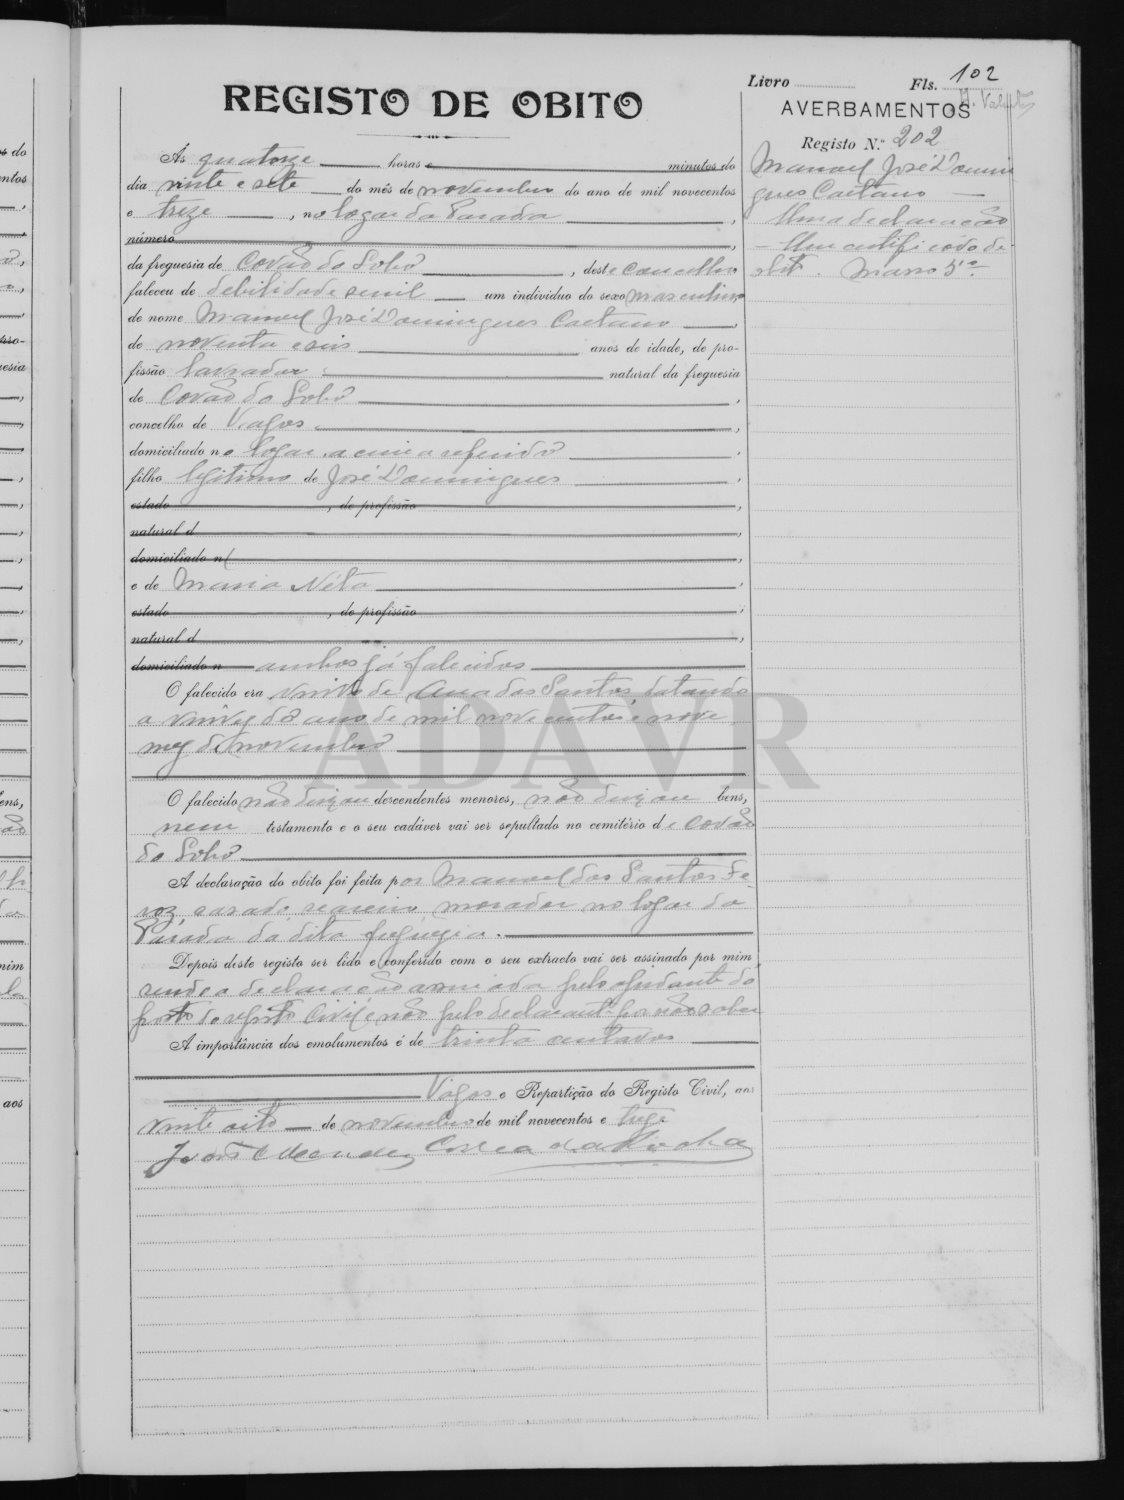 Livro Fls. 102
REGISTO DE OBITO
AVERBAMENTOS
Registo N.º 202
Manuel José Domin
gues Caetano
Uma declaração
Um certificado de
obito. Masso 5º
Ás quatorze horas e minutos do
dia vinte e sete do mês de novembro do ano de mil novecentos
e treze, no logar da Parada,
número,
da freguesia de Covão do Lobo, deste concelho
faleceu de debilidade senil um individuo do sexo masculino
de nome Manuel José Domingues Caetano,
de noventa e seis anos de idade, de pro-
fissão lavrador natural da freguesia
de Covão do Lobo,
concelho de Vagos,
domiciliado no logar acima referido,
filho legitimo de José Domingues,
estado, de profissão,
natural d,
domiciliado n,
e de Maria Néta,
estado, de profissão,
natural d,
domiciliado n ambos já falecidos
O falecido era viuvo de Ana dos Santos, datando
a viuvez do ano de mil nove centos e nove
mez de novembro
ADAVR
O falecido não deixou descendentes menores, não deixou bens,
nem testamento e o seu cadáver vai ser sepultado no cemitério de Covão
do Lobo
A declaração do obito foi feita por Manuel dos Santos Fe-
roz, casado, seareiro, morador no logar da
Parada da dita freguezia.
Depois deste registo ser lido e conferido com o seu extracto vai ser assinado por mim,
sendo a declaração assinada pelo ajudante do
posto do registo civil e não pelo declarante por não saber
A importância dos emolumentos é de trinta centavos
Vagos e Repartição do Registo Civil, aos
vinte oito de novembro de mil novecentos e treze
João Mendes Correa da Rocha